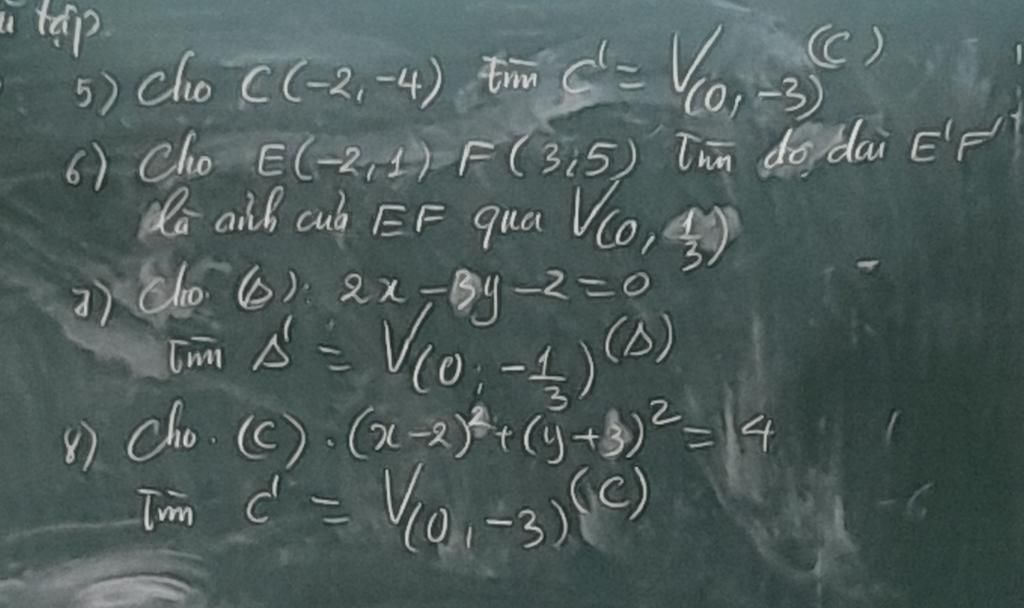 tập
5) Cho C(-2,-4) tìm C' = V(0,-3)(C)
6) Cho E(-2,1) F(3;5) Tìm độ dài E'F'
là ảnh của EF qua V(0,1/3)
7) Cho (Δ): 2x-3y-2=0
Tìm Δ' = V(0;-1/3)(Δ)
8) Cho (C). (x-2)²+(y+3)²=4
Tìm C' = V(0,-3)(C)